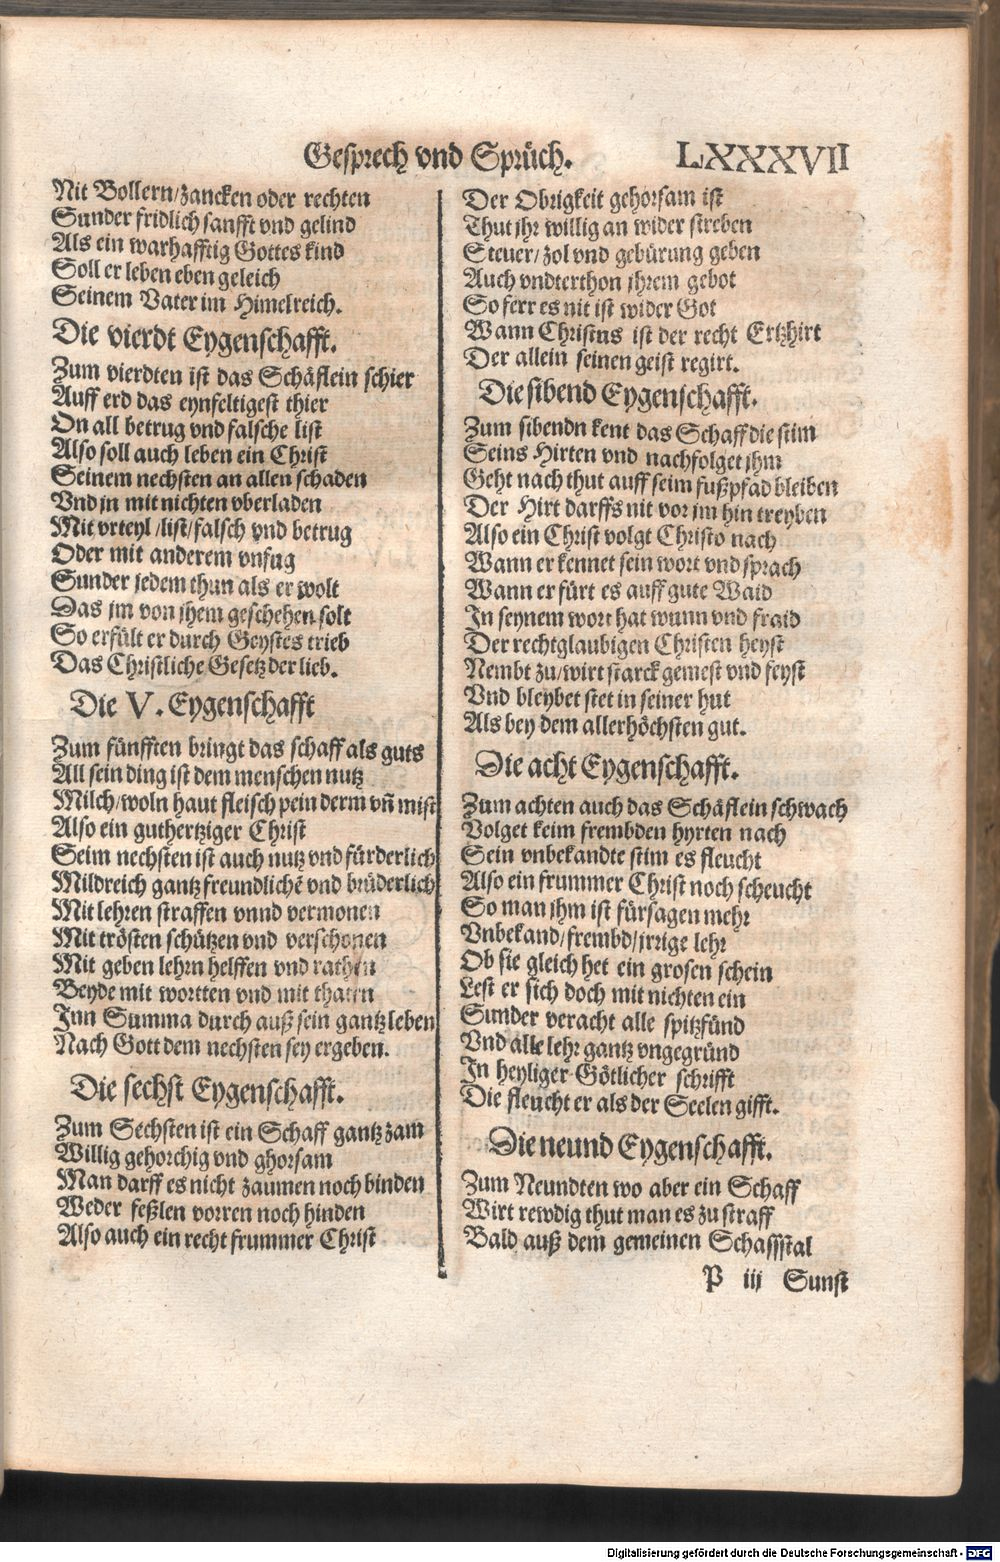 Gesprech vnd Sprüch. LXXXVII
Nit Bollern/zancken oder rechten
Sunder fridlich sanfft vnd gelind
Als ein warhafftig Gottes kind
Soll er leben eben geleich
Seinem Vater im Himelreich.
Die vierdt Eygenschafft.
Zum vierdten ist das Schäflein schier
Auff erd das eynfeltigest thier
On all betrug vnd falsche list
Also soll auch leben ein Christ
Seinem nechsten an allen schaden
Vnd in mit nichten vberladen
Mit vrteyl/list/falsch vnd betrug
Oder mit anderem vnfug
Sunder jedem thun als er wolt
Das jm von jhem geschehen solt
So erfült er durch Geystes trieb
Das Christliche Gesetz der lieb.
Die V. Eygenschafft
Zum fünfften bringt das schaff als guts
All sein ding ist dem menschen nutz
Milch/woln haut fleisch pein derm vñ mist
Also ein guthertziger Christ
Seim nechsten ist auch nutz vnd fürderlich
Mildreich gantz freundlichē vnd brüderlich
Mit lehren straffen vnnd vermonen
Mit trösten schützen vnd verschonen
Mit geben lehrn helffen vnd rathen
Beyde mit wortten vnd mit thaten
Inn Summa durch auß sein gantz leben
Nach Gott dem nechsten sey ergeben.
Die sechst Eygenschafft.
Zum Sechsten ist ein Schaff gantz zam
Willig gehorchig vnd ghorsam
Man darff es nicht zaumen noch binden
Weder feßlen vorren noch hinden
Also auch ein recht frummer Christ
Der Obrigkeit gehorsam ist
Thut jhr willig an wider streben
Steuer/zol vnd gebürung geben
Auch vndterthon jhrem gebot
So ferr es nit ist wider Got
Wann Christus ist der recht Ertzhirt
Der allein seinen geist regirt.
Die sibend Eygenschafft.
Zum sibendn kent das Schaff die stim
Seins Hirten vnd nachfolget jhm
Geht nach thut auff seim fußpfad bleiben
Der Hirt darffs nit vor jm hin treyben
Also ein Christ volgt Christo nach
Wann er kennet sein wort vnd sprach
Wann er fürt es auff gute Waid
In seynem wort hat wunn vnd fraid
Der rechtglaubigen Christen heyst
Nembt zu/wirt starck gemest vnd feyst
Vnd bleybet stet in seiner hut
Als bey dem allerhöchsten gut.
Die acht Eygenschafft.
Zum achten auch das Schäflein schwach
Volget keim frembden hyrten nach
Sein vnbekandte stim es fleucht
Also ein frummer Christ noch scheucht
So man jhm ist fürsagen mehr
Vnbekand/frembd/jrrige lehr
Ob sie gleich het ein grosen schein
Lest er sich doch mit nichten ein
Sunder veracht alle spitzfünd
Vnd alle lehr gantz vngegründ
In heyliger Götlicher schrifft
Die fleucht er als der Seelen gifft.
Die neund Eygenschafft.
Zum Neundten wo aber ein Schaff
Wirt rewdig thut man es zu straff
Bald auß dem gemeinen Schaffstal
P iij Sunst
Digitalisierung gefördert durch die Deutsche Forschungsgemeinschaft - DFG